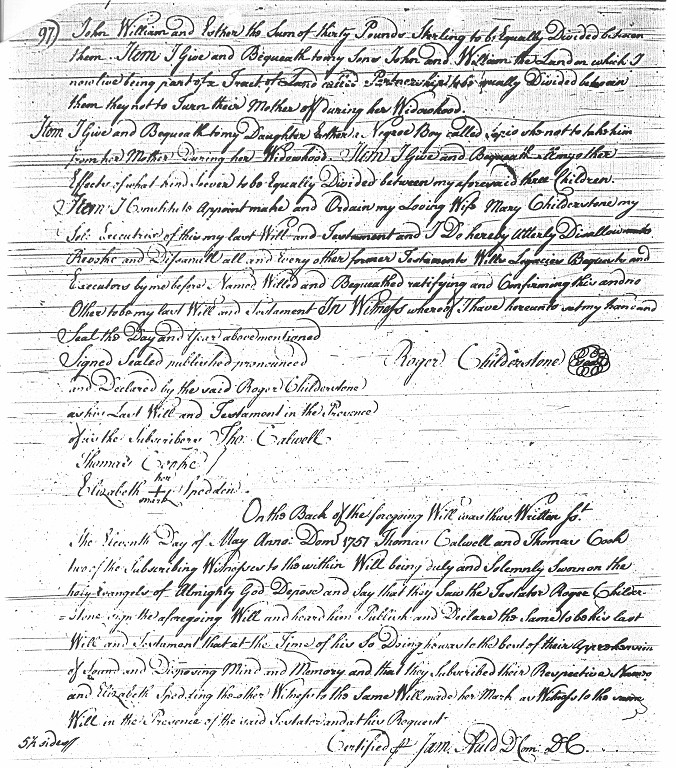 97) John William and Esther the Sum of thirty Pounds Sterling to be Equally Divided between
them. Item I Give and Bequeath to my Sons John and William the Land on which I
now live being part of a Tract of Land called Partnership to be equally Divided between
them they not to Turn their Mother off during her Widowhood.
Item I Give and Bequeath to my Daughter Esther a Negroe Boy called Scipio she not to take him
from her Mother During her Widowhood. Item I Give and Bequeath all my other
Effects of what kind soever to be Equally Divided between my aforesaid three Children.
Item I Constitute Appoint make and Ordain my Loving Wife Mary Childerstone my
Sole Executrix of this my last Will and Testament and I Do hereby Utterly Disallow
Revoke and Disannull all and every other former Testaments Wills Legacies Bequests and
Executors by me before Named Willed and Bequeathed ratifying and Confirming this and no
Other to be my last Will and Testament In Witness whereof I have hereunto set my hand and
Seal the Day and Year abovementioned
Signed Sealed published pronounced Roger Childerstone Seal
and Declared by the said Roger Childerstone
as his Last Will and Testament in the Presence
of us the Subscribers Tho. Calwell
Thomas Cooke
Elizabeth her + mark Spedden.
On the Back of the foregoing Will was thus Written
The Eleventh Day of May Anno: Dom: 1751 Thomas Calwell and Thomas Cook
two of the Subscribing Witnesses to the within Will being duly and Solemnly Sworn on the
holy Evangels of Almighty God Depose and Say that they Saw the Testator Roger Childer-
=stone sign the aforegoing Will and heard him Publish and Declare the Same to be his last
Will and Testament that at the Time of his So Doing he was to the best of their Apprehension
of Sound and Disposing Mind and Memory and that they Subscribed their Respective Names
and Elizabeth Spedding the other Witness to the Same Will made her Mark as Witness to the same
Will in the Presence of the said Testator and at his Request
5½ sides Certified Jam. Auld D Com: DC.